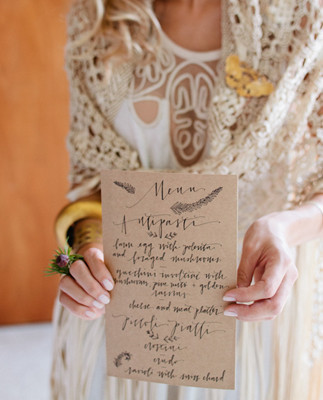 Menu
Antipasti
farm egg with polenta
and foraged mushrooms
zucchini involtini with
mushrooms, pine nuts + golden
raisins
cheese and meat platter
Piccoli Piatti
crostini
crudo
ravioli with swiss chard